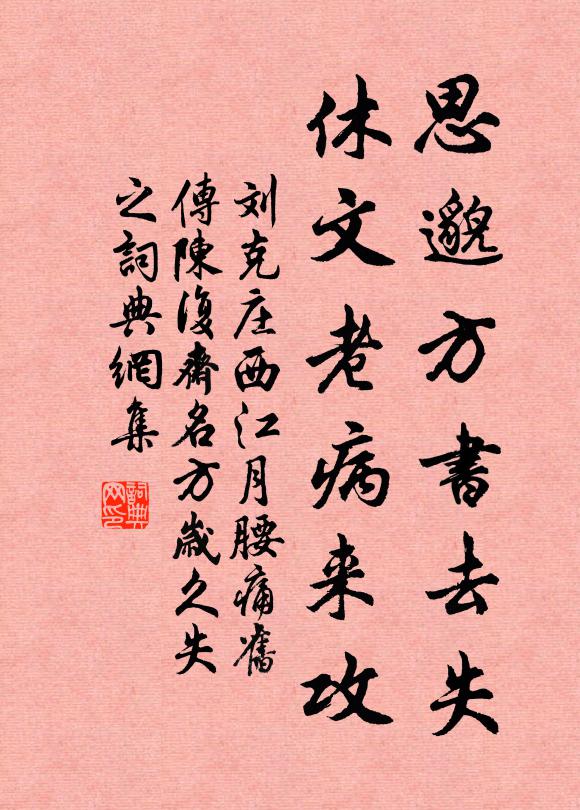 思邈方書去失
休文老病来攻
刘克庄西江月腰痛舊
傳陳復齋名方歳久失
之詞典網集
詞典
网印